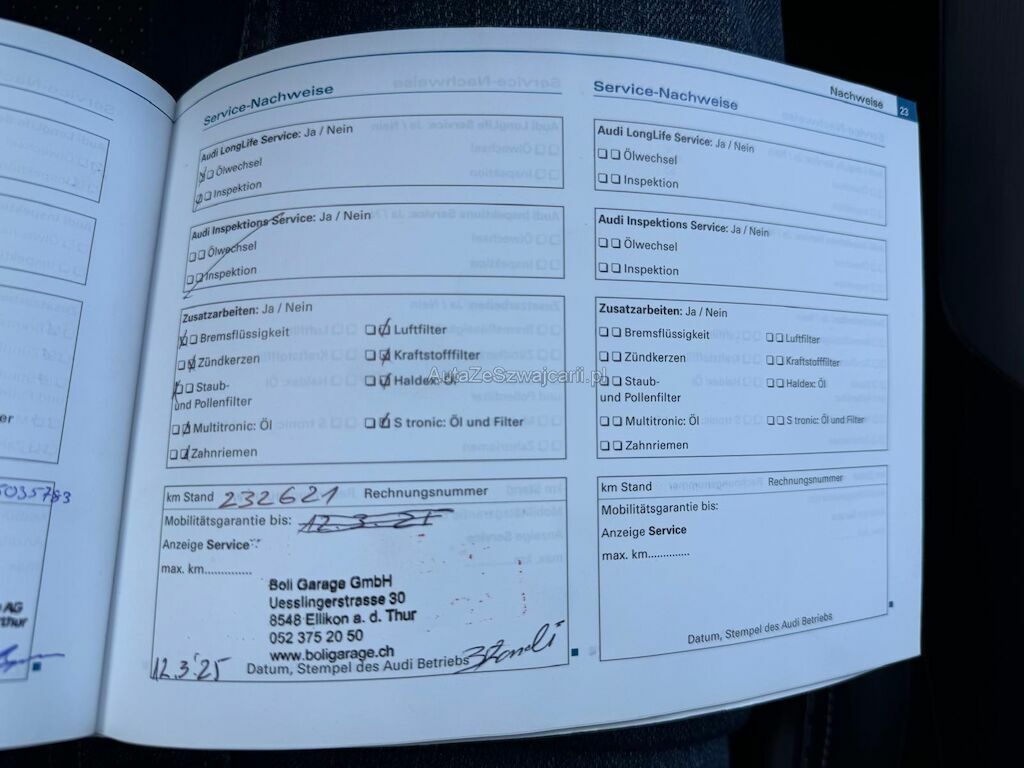 Nachweise 23
Service-Nachweise
Audi LongLife Service: Ja / Nein
Ölwechsel
Inspektion
Audi Inspektions Service: Ja / Nein
Ölwechsel
Inspektion
Zusatzarbeiten: Ja / Nein
Bremsflüssigkeit
Luftfilter
Zündkerzen
Kraftstofffilter
Staub-
und Pollenfilter
Haldex: Öl
Multitronic: Öl
S tronic: Öl und Filter
Zahnriemen
km Stand 232621 Rechnungsnummer
Mobilitätsgarantie bis: 12.3.25
Anzeige Service
max. km..............
Boli Garage GmbH
Uesslingerstrasse 30
8548 Ellikon a. d. Thur
052 375 20 50
www.boligarage.ch
12.3.25 Datum, Stempel des Audi Betriebs
Service-Nachweise
Audi LongLife Service: Ja / Nein
Ölwechsel
Inspektion
Audi Inspektions Service: Ja / Nein
Ölwechsel
Inspektion
Zusatzarbeiten: Ja / Nein
Bremsflüssigkeit
Luftfilter
Zündkerzen
Kraftstofffilter
Staub-
und Pollenfilter
Haldex: Öl
Multitronic: Öl
S tronic: Öl und Filter
Zahnriemen
km Stand Rechnungsnummer
Mobilitätsgarantie bis:
Anzeige Service
max. km..............
Datum, Stempel des Audi Betriebs
AutaZeSzwajcarii.pl